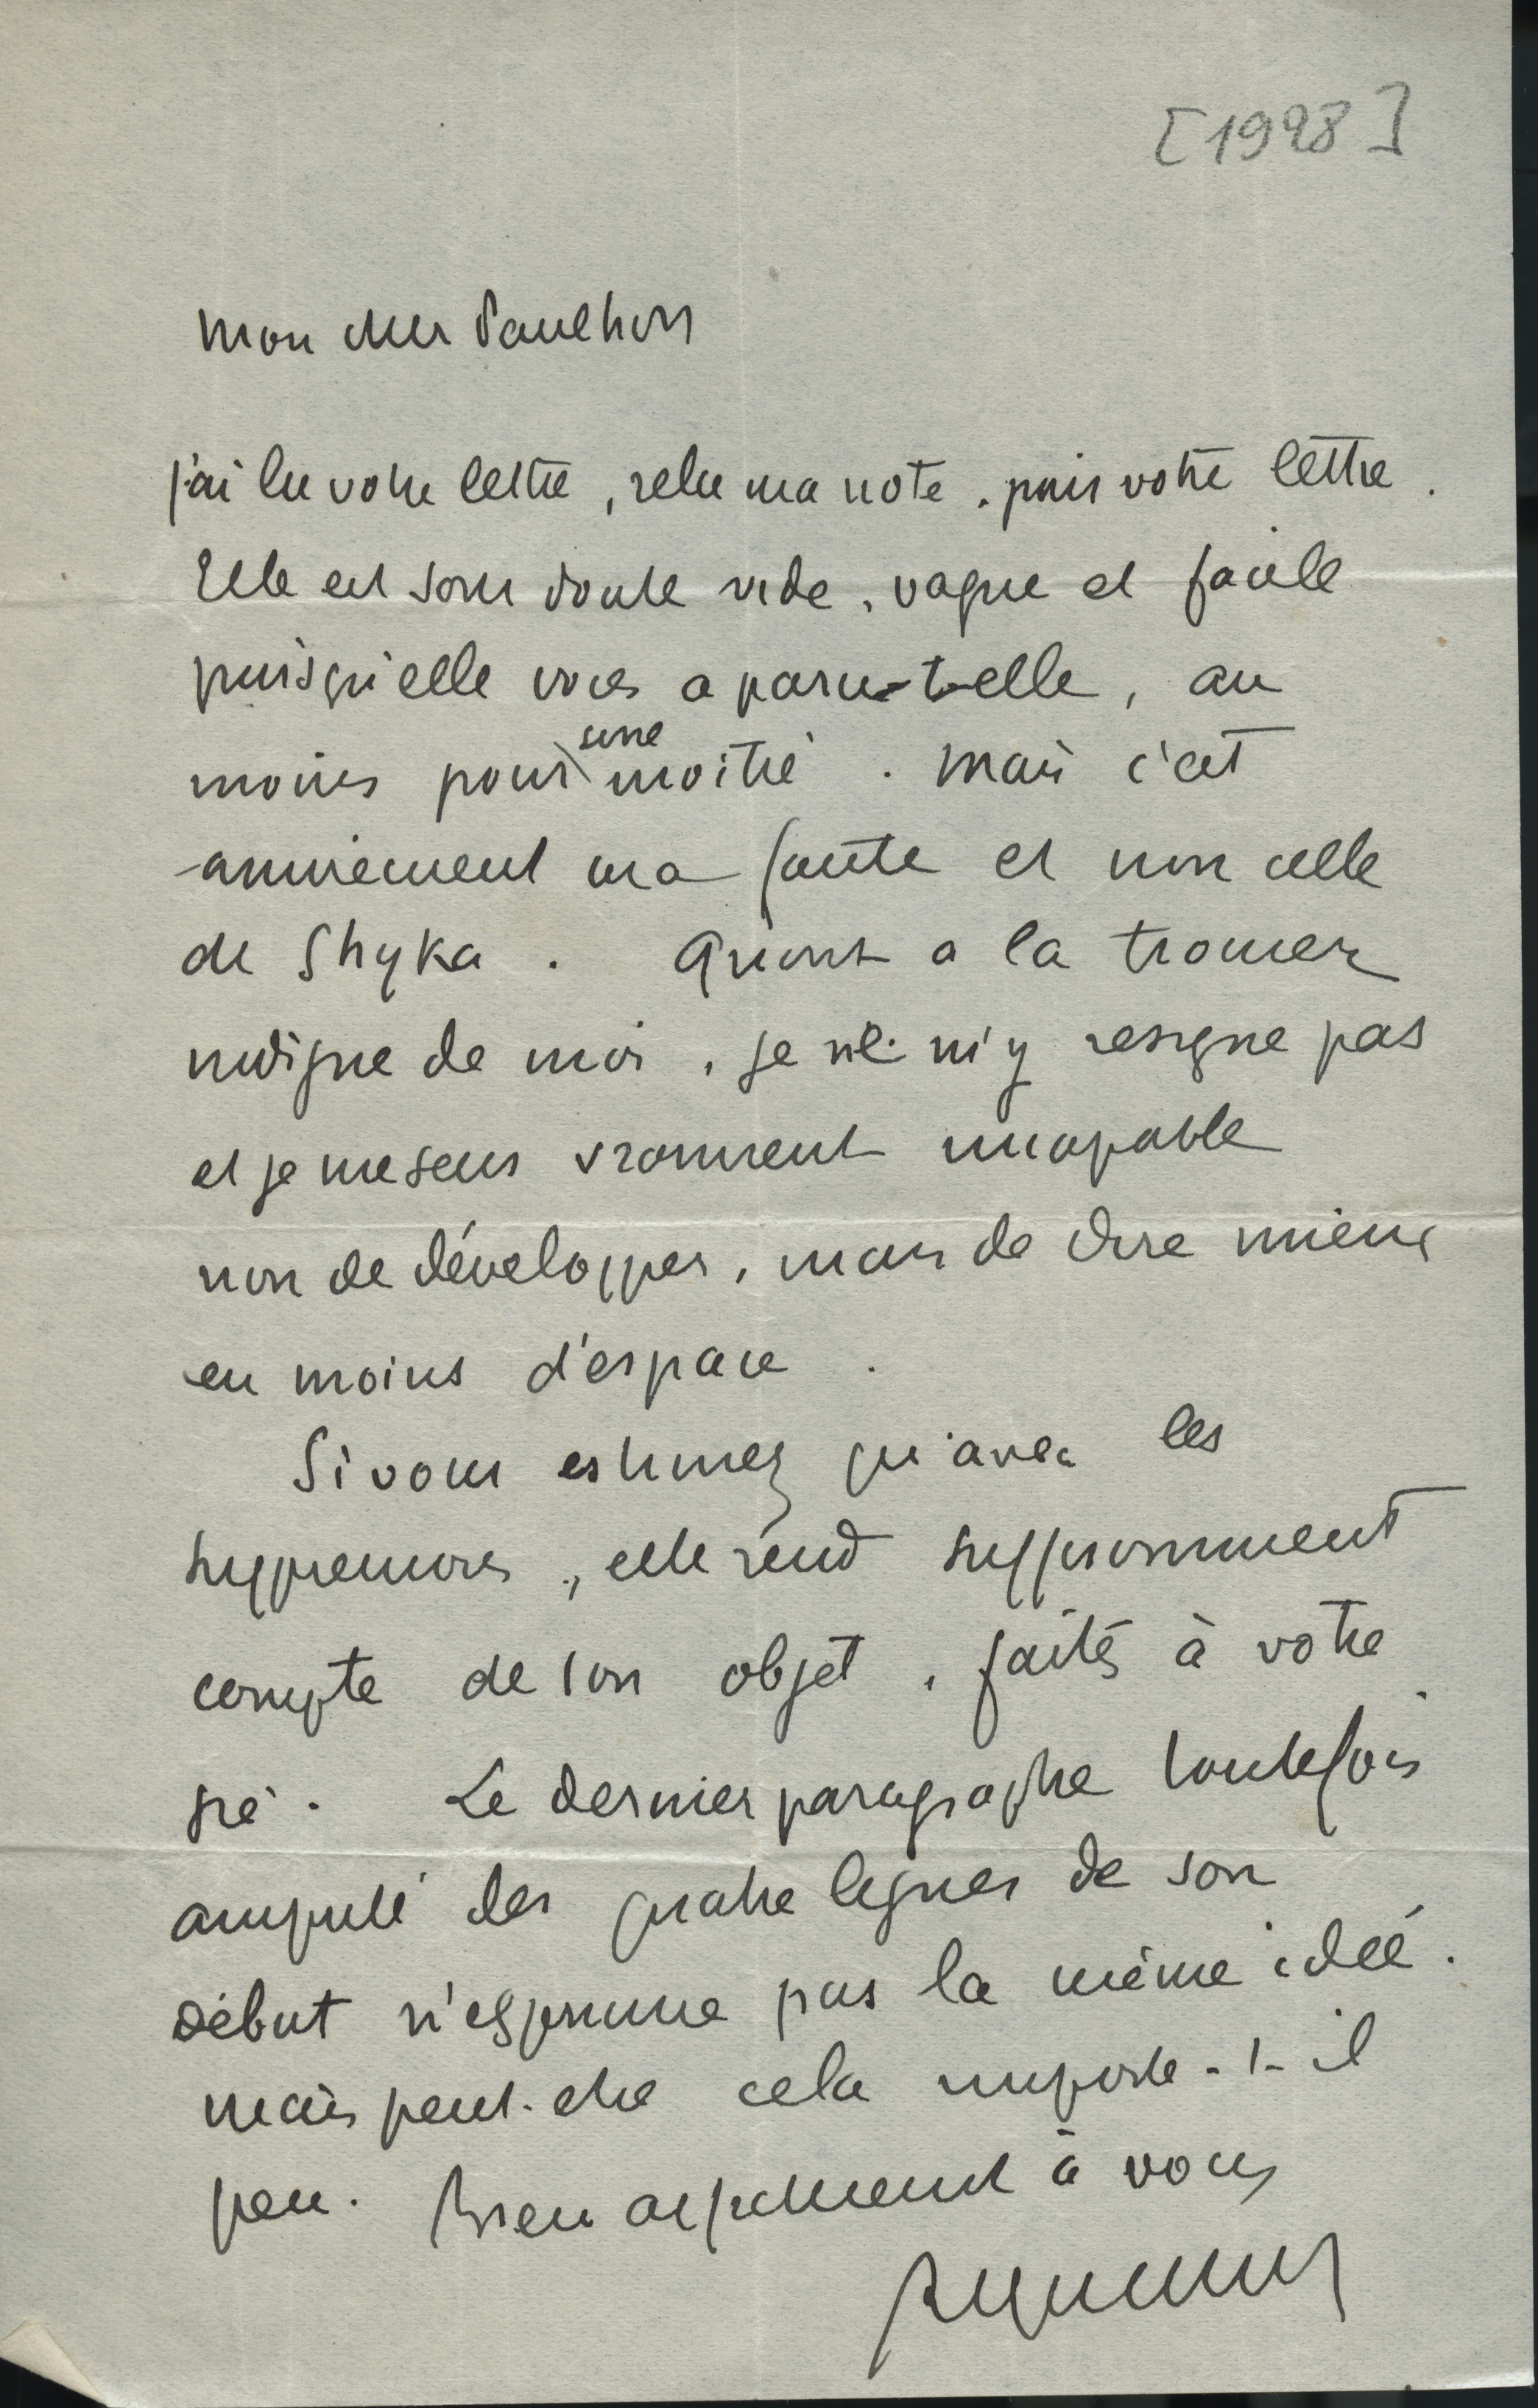 [1928]
Mon cher Paulhan
j'ai lu votre lettre, relu ma note, puis votre lettre.
Elle est sans doute vide, vague et facile
puisqu'elle vous a paru telle, au
moins pour une moitié. Mais c'est
assurément ma faute et non celle
de Shyka. Quant a la trouver
indigne de moi, je ne m'y resigne pas
et je me sens vraiment incapable
non de développer, mais de dire mieux
en moins d'espace.
Si vous estimez qu'avec les
suppressions, elle rend suffisamment
compte de son objet, faites à votre
gré. Le dernier paragraphe toutefois
amputé des quatre lignes de son
début n'exprime pas la même idée.
mais peut-etre cela importe-t-il
peu. Bien à vous